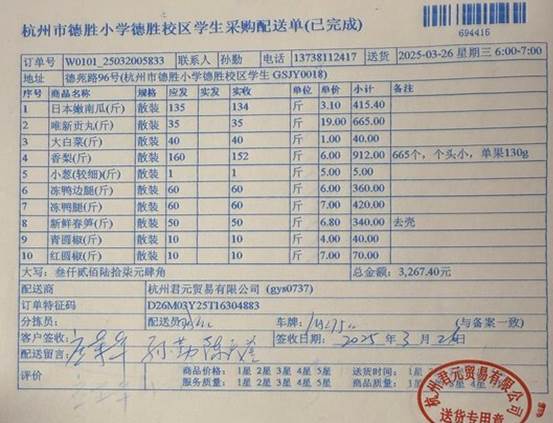 杭州市德胜小学德胜校区学生采购配送单(已完成)
694416
订单号 W0101_25032005833 联系人 孙勤 电话 13738112417 送货 2025-03-26 星期三 6:00-7:00
地址 德苑路96号(杭州市德胜小学德胜校区学生 GSJY0018)
序号 商品名称 规格 应发 实发 实收 单位 单价 小计 备注
1 日本嫩南瓜(斤) 散装 135 134 斤 3.10 415.40
2 唯新贡丸(斤) 散装 35 35 斤 19.00 665.00
3 大白菜(斤) 散装 40 40 斤 1.00 40.00
4 香梨(斤) 散装 160 152 斤 6.00 912.00 665个，个头小，单果130g
5 小葱(较细)(斤) 散装 1 1 斤 5.00 5.00
6 冻鸭边腿(斤) 散装 60 60 斤 6.00 360.00
7 冻鸭腿(斤) 散装 60 60 斤 7.00 420.00
8 新鲜春笋(斤) 散装 50 50 斤 6.80 340.00 去壳
9 青圆椒(斤) 散装 10 10 斤 4.00 40.00
10 红圆椒(斤) 散装 10 10 斤 7.00 70.00
大写：叁仟贰佰陆拾柒元肆角 总金额：3,267.40元
配送商 杭州君元贸易有限公司 (gys0737)
订单特征码 D26M03Y25T16304883
分拣员： 配送员： 车牌： (与备案一致)
客户签收： 孙勤 签收日期： 2025年3月26日
配送留言：
评价 商品价格： 1星 2星 3星 4星 5星 送货时间： 1星
服务质量： 1星 2星 3星 4星 5星 商品质量： 1星
杭州君元贸易有限公司
送货专用章